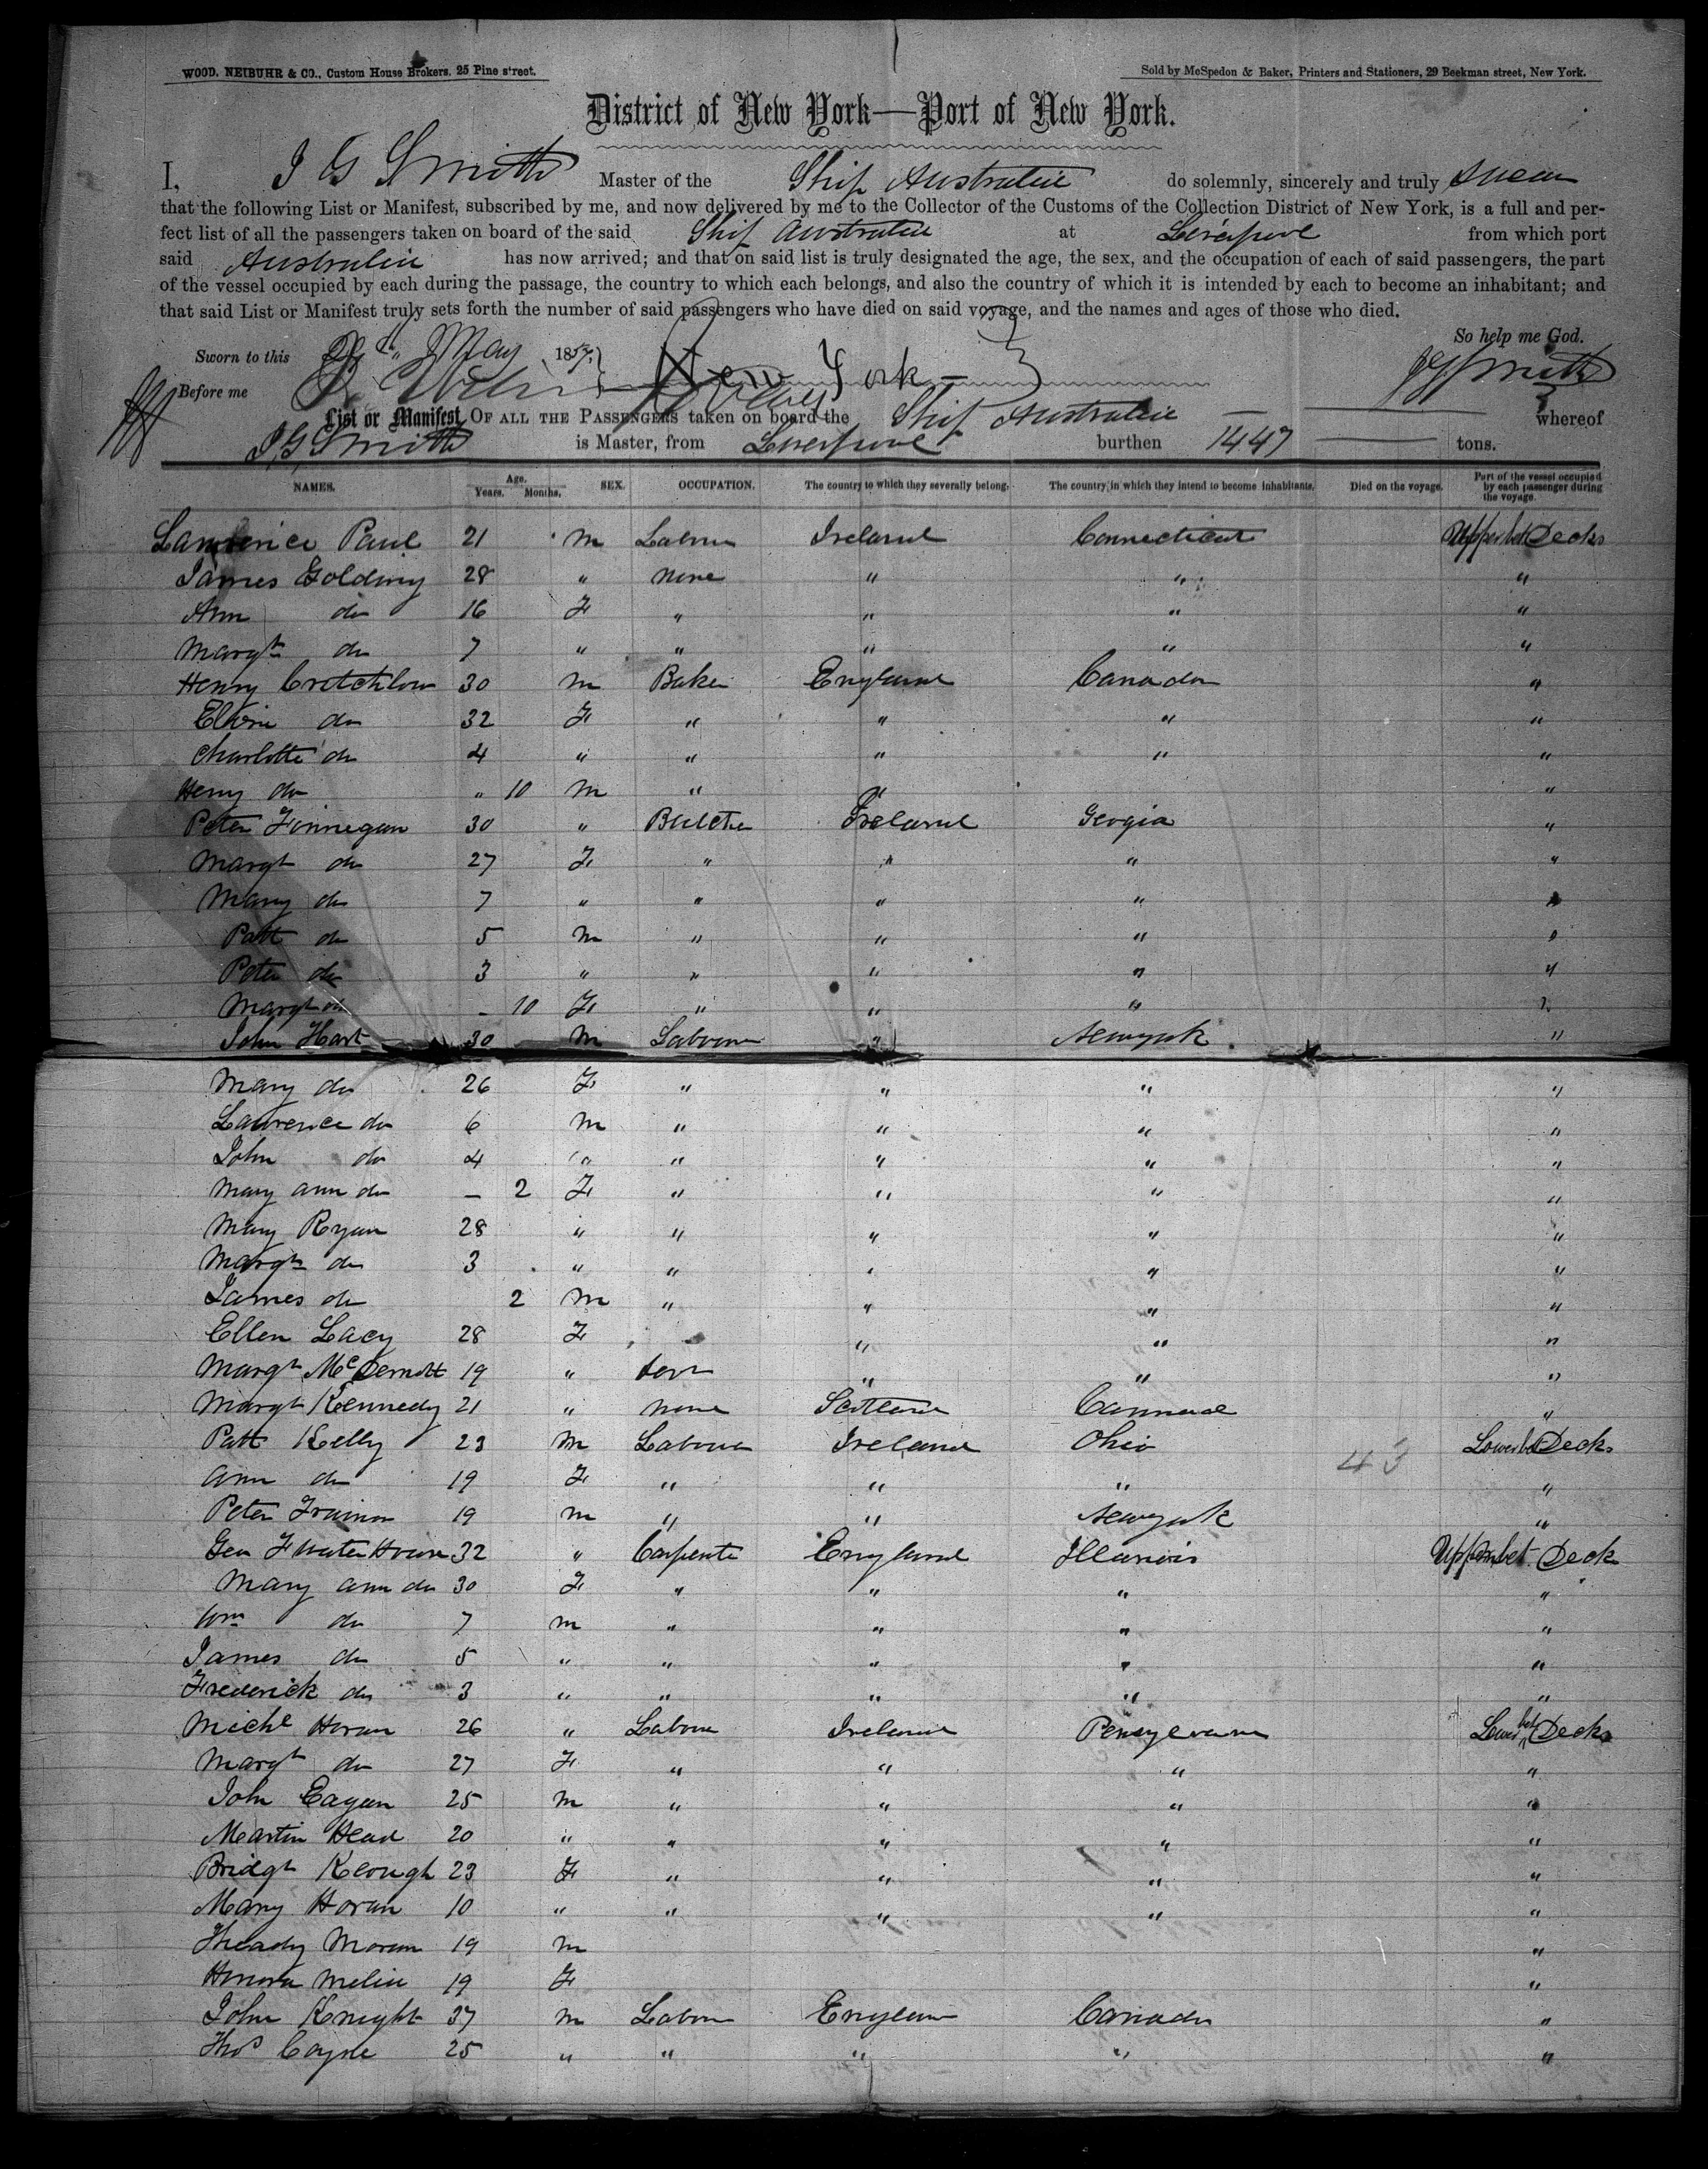 WOOD, NEIBUHR & CO., Custom House Brokers, 25 Pine street.
Sold by McSpedon & Baker, Printers and Stationers, 29 Beekman street, New York.
District of New York—Port of New York.
I, J G Smith Master of the Ship Australia do solemnly, sincerely and truly Swear
that the following List or Manifest, subscribed by me, and now delivered by me to the Collector of the Customs of the Collection District of New York, is a full and per-
fect list of all the passengers taken on board of the said Ship Australia at Liverpool from which port
said Australia has now arrived; and that on said list is truly designated the age, the sex, and the occupation of each of said passengers, the part
of the vessel occupied by each during the passage, the country to which each belongs, and also the country of which it is intended by each to become an inhabitant; and
that said List or Manifest truly sets forth the number of said passengers who have died on said voyage, and the names and ages of those who died.
So help me God.
Sworn to this May 1857. New York J G Smith
Before me
List or Manifest OF ALL THE PASSENGERS taken on board the Ship Australia whereof
J. G. Smith is Master, from Liverpool burthen 1447 tons.
NAMES. Age. Years. Months. SEX. OCCUPATION. The country to which they severally belong. The country in which they intend to become inhabitants. Died on the voyage. Part of the vessel occupied by each passenger during the voyage.
Lawrence Paul 21 m Labour Ireland Connecticut Upper bet Decks
James Golding 28 " none " " "
Ann do 16 F " " " "
Margt do 7 " " " " "
Henry Critchlow 30 m Baker England Canada "
do 32 F " " " "
Charlotte do 4 " " " " "
Henry do " 10 m " " "
Peter Finnegan 30 " Butcher Ireland Georgia "
Margt do 27 F " " " "
Mary do 7 " " " " "
Patt do 5 m " " " "
Peter do 3 " " " " "
Margt do – 10 F " " " "
John Hart 30 m Labour " Newyork "
Mary do 26 F " " " "
Lawrence do 6 m " " " "
John do 4 " " " " "
Mary ann do – 2 F " " " "
Mary Ryan 28 " " " " "
Margt do 3 " " " " "
James do 2 m " " " "
Ellen Lacy 28 F " " " "
Margt McDermott 19 " " " "
Margt Kennedy 21 " none Scotland "
Patt Kelly 23 m Labour Ireland Ohio 43 Lower bet Decks
Ann do 19 F " " " "
Peter Trainor 19 m " " Newyork "
Geo F Water House 32 " Carpente England Illinois Upper bet Deck
Mary ann do 30 F " " " "
Wm do 7 m " " " "
James do 5 " " " " "
Frederick do 3 " " " " "
Michl Horan 26 " Labour Ireland Pensylvania Lower bet Decks
Margt do 27 F " " " "
John Eagan 25 m " " " "
Martin Head 20 " " " " "
Bridgt Keough 23 F " " " "
Mary Horan 10 " " " " "
Theady Moran 19 m "
Honora 19 F "
John Knight 37 m Labour England Canada "
Thos Coyne 25 " " " " "